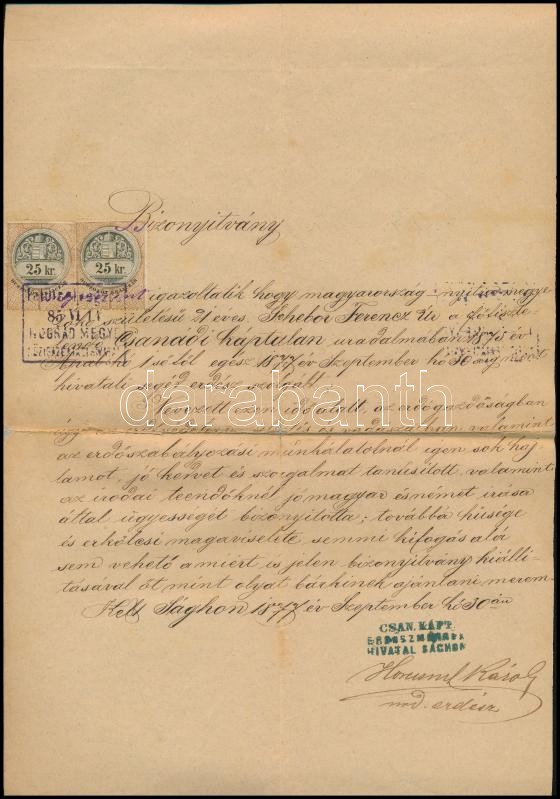 Bizonyitvány
25 kr. 25 kr.
igazoltatik hogy magyarország nyitra megye
születésü 21 éves. Fehebor Ferencz Úr a főtiszte-
Csanádi káptalan uradalmában 1875 év
től egész 1877 év Szeptember hó 30 áig mint
hivatali segéd erdész szolgált
Nevezett ezen idő alatt, az erdőgazdaságban
valamint
az erdőszabályozási munkálatoknál igen sok haj-
lamot, jó kedvet és szorgalmat tanúsított, valamint
az irodai teendőknél jó magyar és német irása
által ügyességét bizonyitotta; továbbá hüsége
és erkölcsi magaviselete semmi kifogás alá
sem vehető a miért is jelen bizonyitvány kiálli-
tásával őt mint olyat bárkinek ajánlani merem.
Kelt Sághon 1877 év Szeptember hó 30 án
CSAN. KÁPT.
ERDÖSZMESTER
HIVATAL SÁGHON
Károly
erdész
darabanth